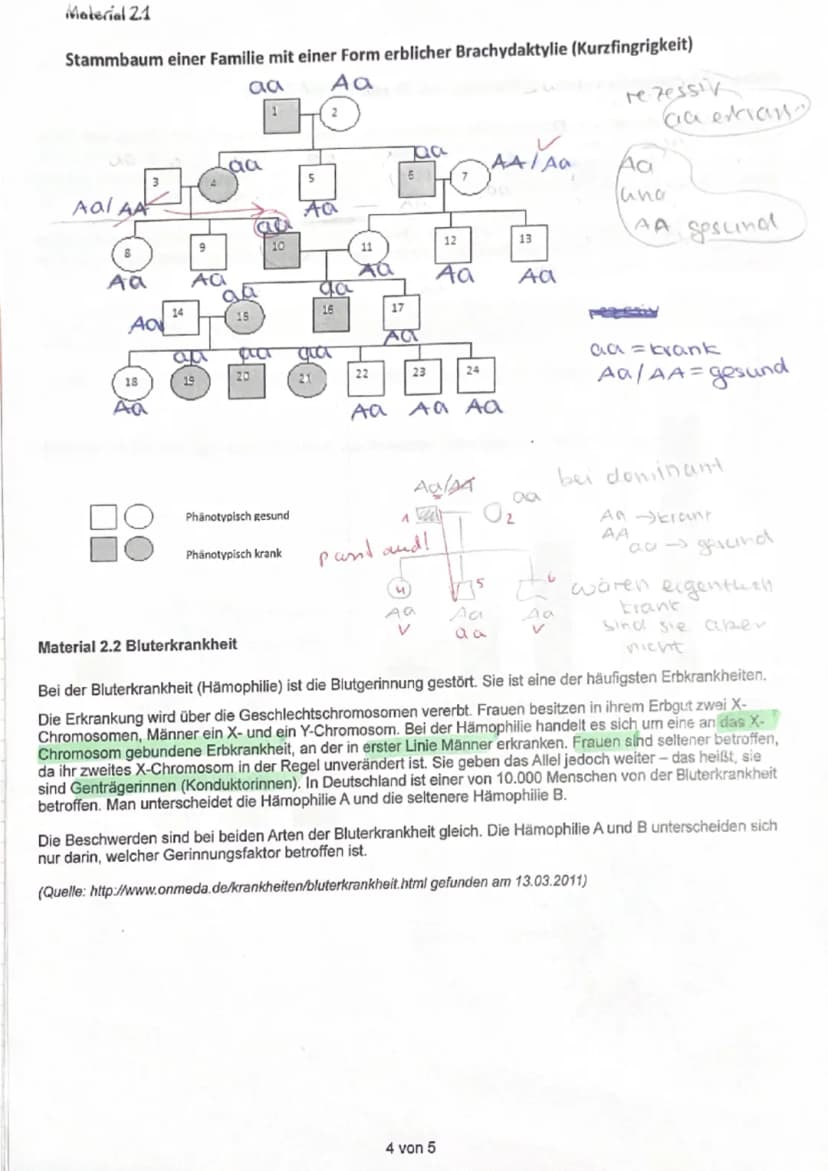 Material 2.1
Stammbaum einer Familie mit einer Form erblicher Brachydaktylie (Kurzfingrigkeit)
aa Aa
1 2
rezessiv
aa erkran
aa aa AA/Aa
3 4 5 6 7
Aa/AA Aa
Aa
und
AA gesund
aa
8 9 10 11 12 13
Aa Aa Aa Aa Aa
aa aa
14 15 16 17
Aa Aa
rezessiv
aa = krank
Aa/AA = gesund
aa aa aa
18 19 20 21 22 23 24
Aa Aa Aa Aa
bei dominant
Aa/AA aa
1 2
Aa → krank
AA
aa → gesund
Phänotypisch gesund
Phänotypisch krank
4 5 6
Aa Aa Aa
aa
wären eigentlich
krank
sind sie aber
nicht
Material 2.2 Bluterkrankheit
Bei der Bluterkrankheit (Hämophilie) ist die Blutgerinnung gestört. Sie ist eine der häufigsten Erbkrankheiten.
Die Erkrankung wird über die Geschlechtschromosomen vererbt. Frauen besitzen in ihrem Erbgut zwei X-
Chromosomen, Männer ein X- und ein Y-Chromosom. Bei der Hämophilie handelt es sich um eine an das X-
Chromosom gebundene Erbkrankheit, an der in erster Linie Männer erkranken. Frauen sind seltener betroffen,
da ihr zweites X-Chromosom in der Regel unverändert ist. Sie geben das Allel jedoch weiter – das heißt, sie
sind Genträgerinnen (Konduktorinnen). In Deutschland ist einer von 10.000 Menschen von der Bluterkrankheit
betroffen. Man unterscheidet die Hämophilie A und die seltenere Hämophilie B.
Die Beschwerden sind bei beiden Arten der Bluterkrankheit gleich. Die Hämophilie A und B unterscheiden sich
nur darin, welcher Gerinnungsfaktor betroffen ist.
(Quelle: http://www.onmeda.de/krankheiten/bluterkrankheit.html gefunden am 13.03.2011)
4 von 5